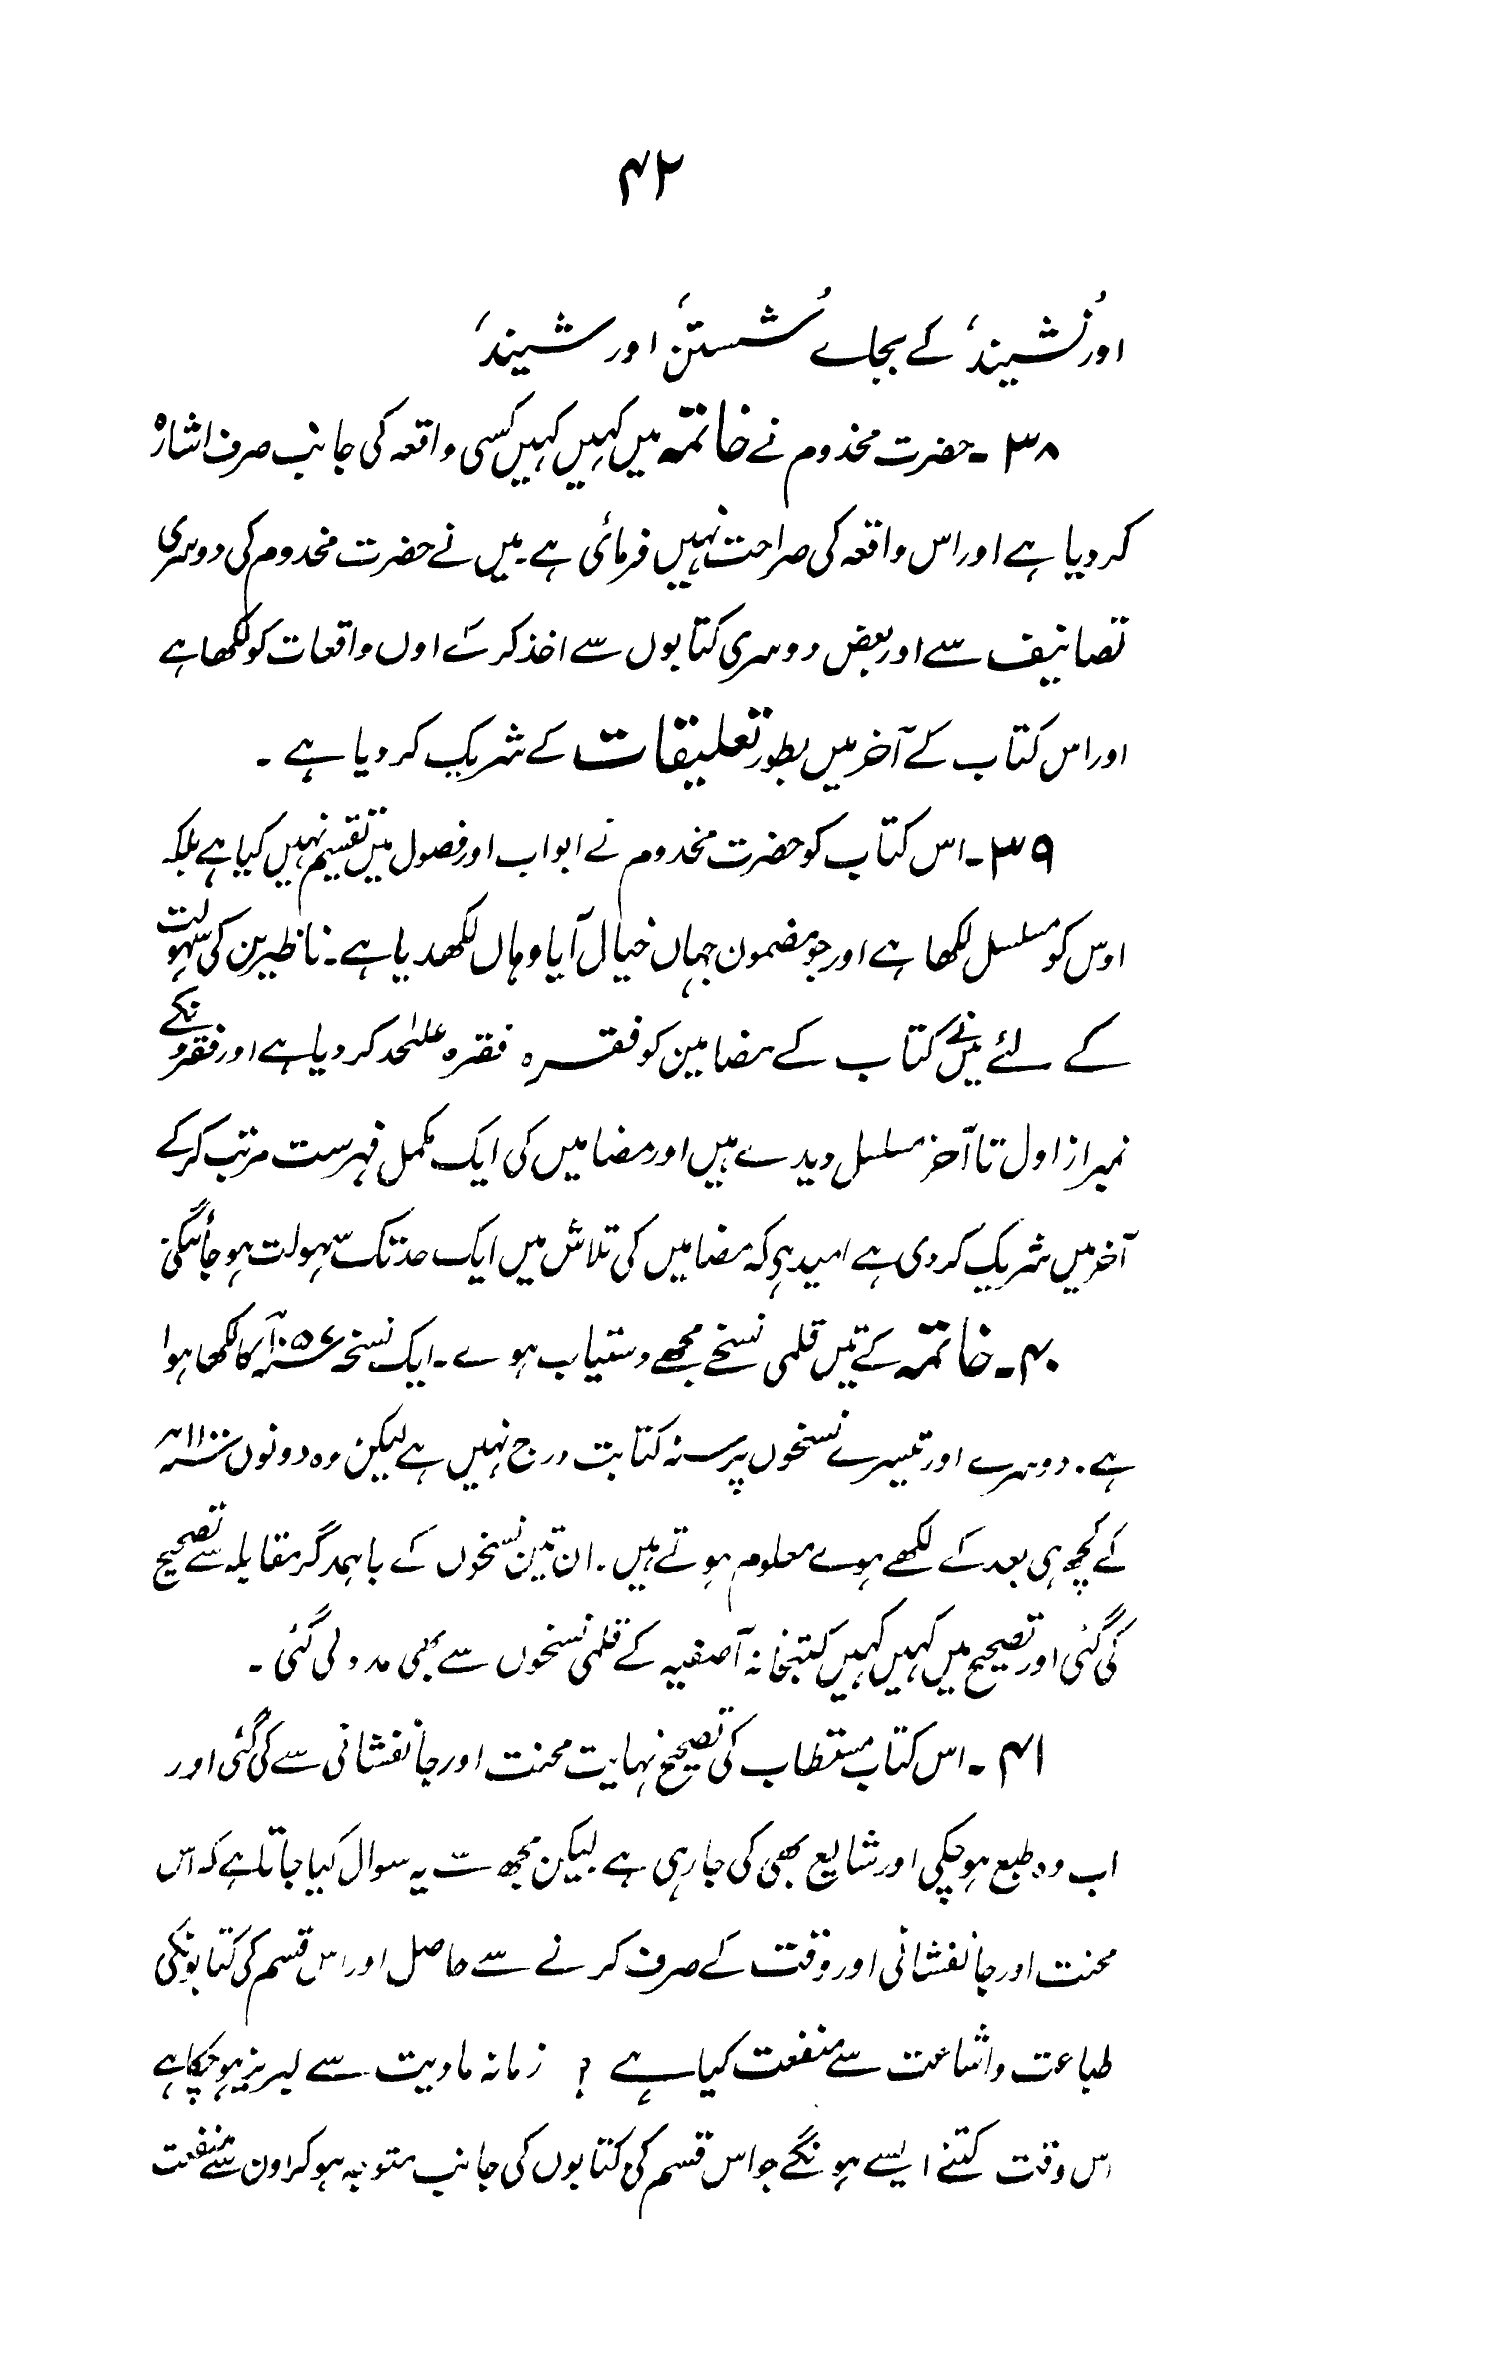 ۴۲
اور ’نشیند‘ کے بجاے ’شستن‘ اور شیند‘
۳۸ ۔ حضرت مخدوم نے خاتمہ میں کہیں کہیں کسی واقعہ کی جانب صرف اشارہ
کردیا ہے اور اس واقعہ کی صراحت نہیں فرمائی ہے۔ میں نے حضرت مخدوم کی دوسری
تصانیف سے اور بعض دوسری کتابوں سے اخذ کرکے اوں واقعات کو لکھا ہے
اور اس کتاب کے آخر میں بطور تعلیقات کے شریک کردیا ہے ۔
۳۹ ۔ اس کتاب کو حضرت مخدوم نے ابواب اور فصول میں تقسیم نہیں کیا ہے بلکہ
اوس کو مسلسل لکھا ہے اور جو مضمون جہاں خیال آیا وہاں لکھدیا ہے ۔ ناظرین کی سہولت
کے لئے میں نے کتاب کے مضامین کو فقرہ فقرہ علٰحد کردیا ہے اور فقرونکے
نمبر از اول تا آخر مسلسل دیدے ہیں اور مضامیں کی ایک مکمل فہرست مرتب کرکے
آخر میں شریک کردی ہے امید ہی کہ مضامیں کی تلاش میں ایک حد تک سہولت ہو جائیگی
۴۰ ۔ خاتمہ کے تیں قلمی نسخے مجھے دستیاب ہوے ۔ ایک نسخہ ۱۰۵۶ کا لکھا ہوا
ہے ۔ دوسرے اور تیسرے نسخوں پر سنہ کتابت درج نہیں ہے لیکن وہ دونوں سنہ ۱۱۰۰ھ
کے کچھ ہی بعد کے لکھے ہوے معلوم ہوتے ہیں ۔ ان تین نسخوں کے باہمدگر مقابلہ سے تصحیح
کی گئی اور تصحیح میں کہیں کہیں کتبخانہ آصفیہ کے قلمی نسخوں سے بھی مدد لی گئی ۔
۴۱ ۔ اس کتاب مستطاب کی تصحیح نہایت محنت اور جانفشانی سے کی گئی اور
اب وہ طبع ہوچکی اور شایع بھی کی جارہی ہے لیکن مجھ سے یہ سوال کیا جاتا ہے کہ اس
محنت اور جانفشانی اور وقت کے صرف کرنے سے حاصل اور اس قسم کی کتابونکی
طباعت واشاعت سے منفعت کیا ہے ؟ زمانہ مادیت سے لبریز ہوچکا ہے
اس وقت کتنے ایسے ہونگے جو اس قسم کی کتابوں کی جانب متوجہ ہوکر اون سے منفعت